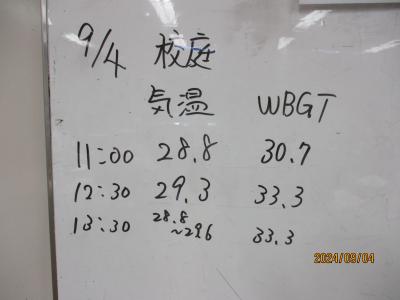 9/4 校庭
気温 WBGT
11:00 28.8 30.7
12:30 29.3 33.3
13:30 28.8 33.3
～29.6
2024/09/04